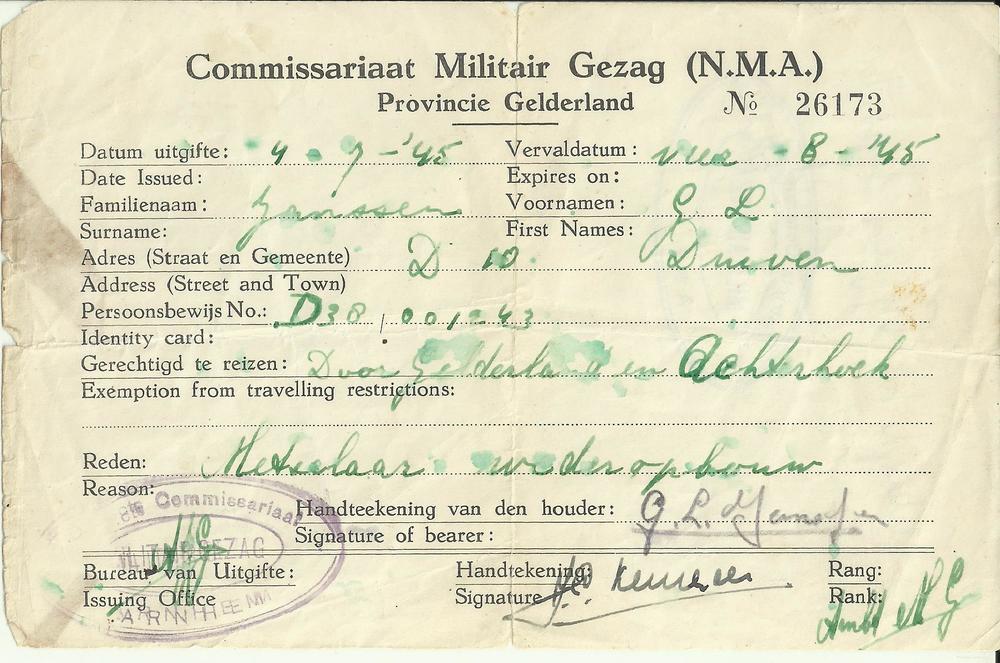 Commissariaat Militair Gezag (N.M.A.)
Provincie Gelderland № 26173
Datum uitgifte: 4-7-'45 Vervaldatum: -8-'45
Date Issued: Expires on:
Familienaam: Janssen Voornamen: G L
Surname: First Names:
Adres (Straat en Gemeente) D 10. Duiven
Address (Street and Town)
Persoonsbewijs No.: D38/001243
Identity card:
Gerechtigd te reizen: Door Gelderland en Achterhoek
Exemption from travelling restrictions:
Reden: Metselaar wederopbouw
Reason:
Commissariaat
MILITAIR GEZAG
ARNHEM
Handteekening van den houder: G. L. Janssen
Signature of bearer:
Bureau van Uitgifte: Handtekening Rang:
Issuing Office Signature Rank: MG